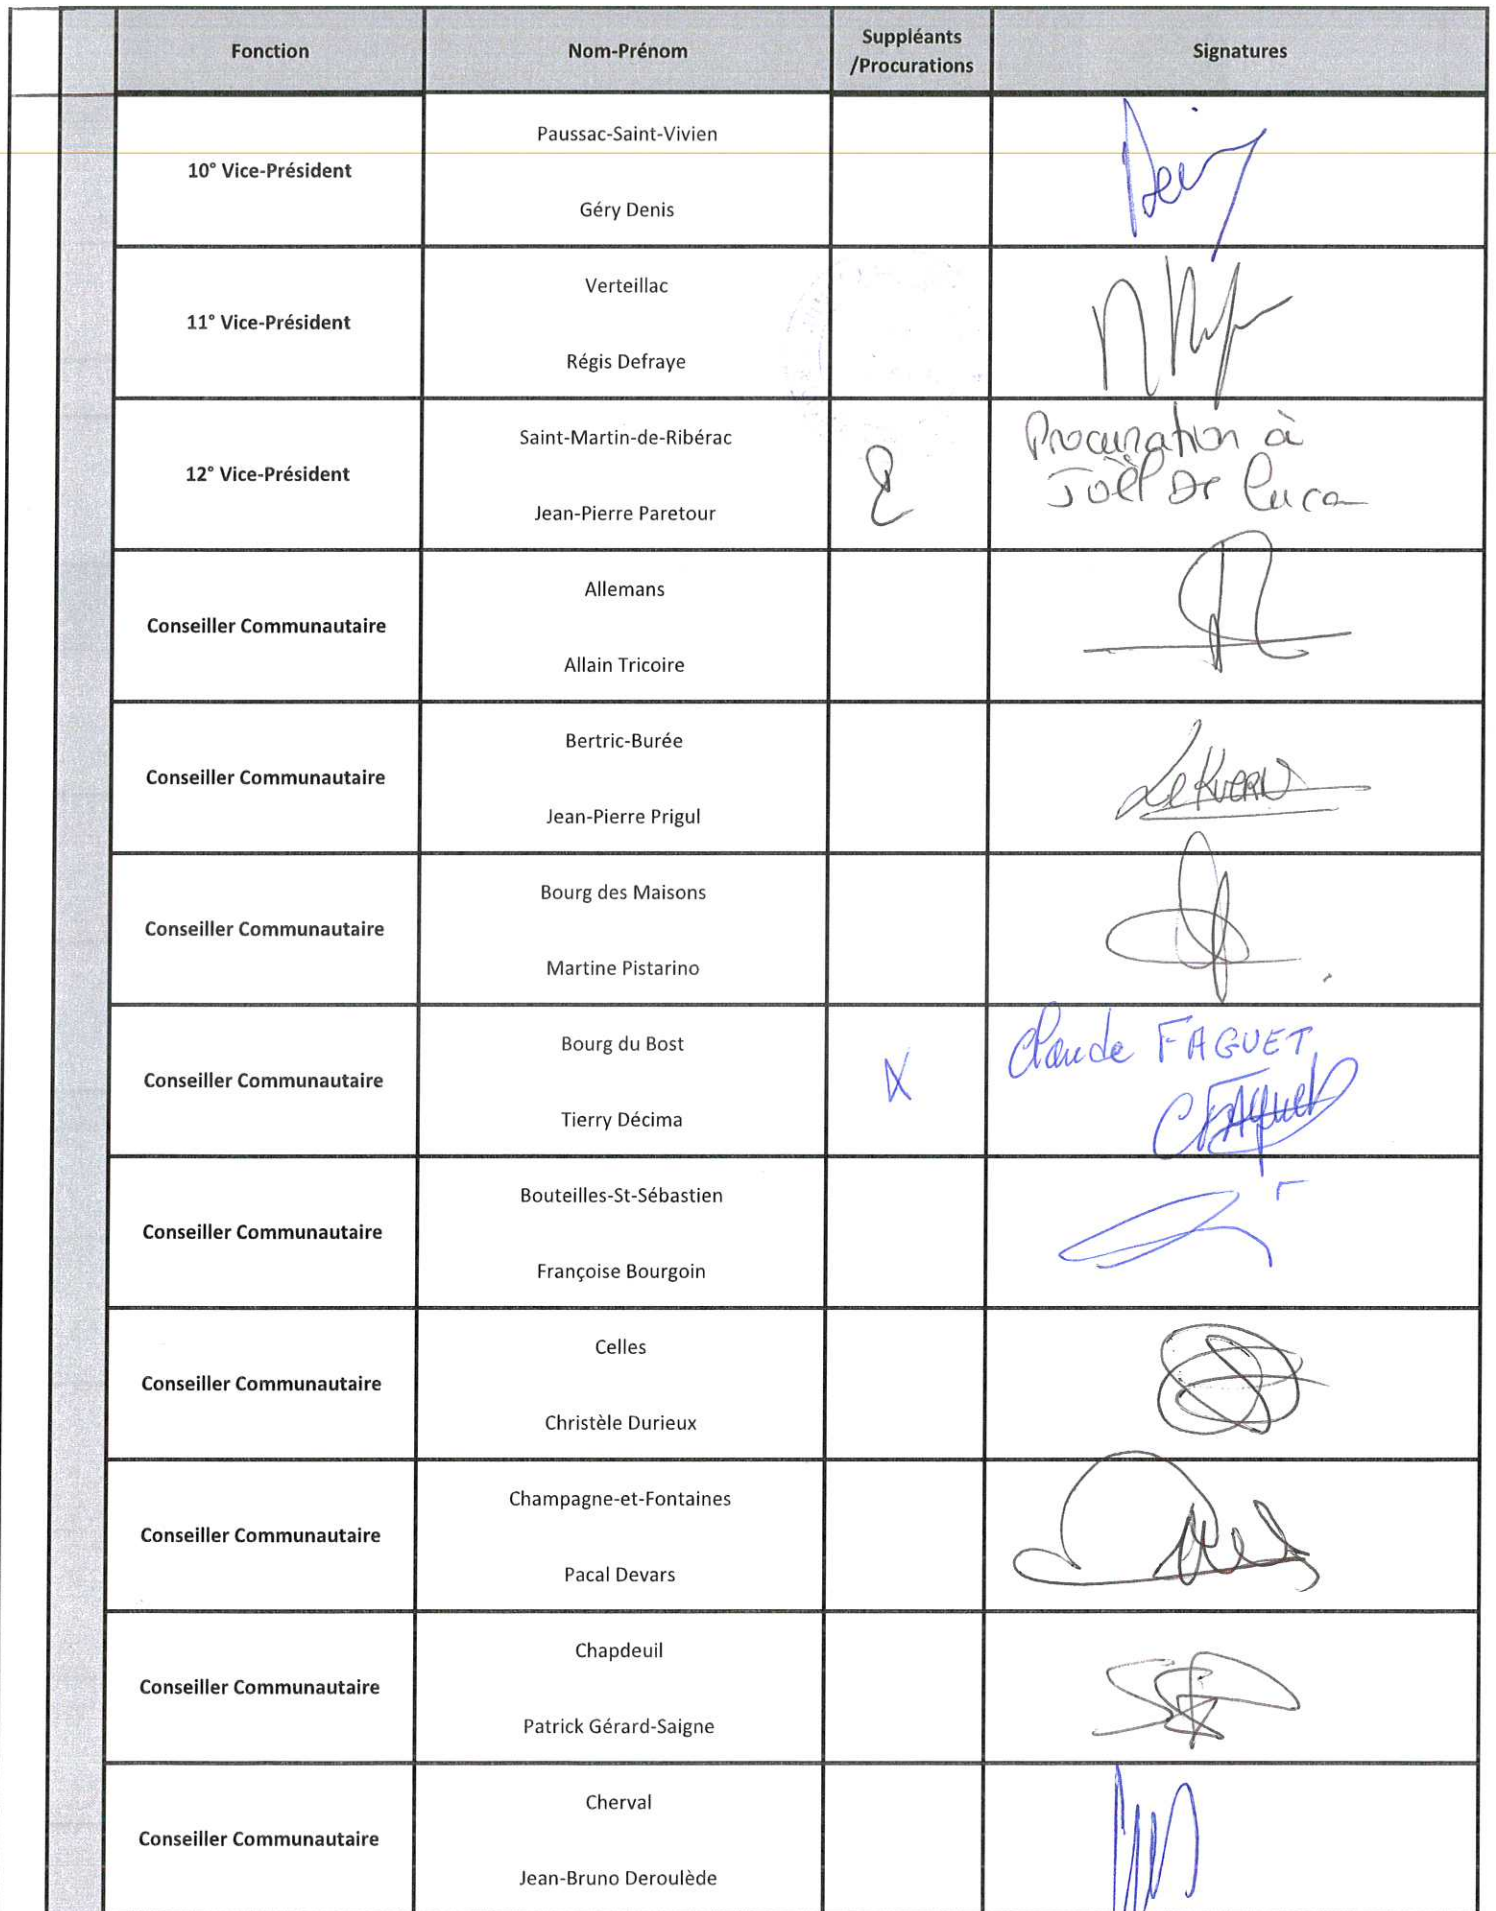 Fonction
Nom-Prénom
Suppléants
/Procurations
Signatures
10° Vice-Président
Paussac-Saint-Vivien
Géry Denis
11° Vice-Président
Verteillac
Régis Defraye
12° Vice-Président
Saint-Martin-de-Ribérac
Jean-Pierre Paretour
Procuration à
Joël De Luca
Conseiller Communautaire
Allemans
Allain Tricoire
Conseiller Communautaire
Bertric-Burée
Jean-Pierre Prigul
Conseiller Communautaire
Bourg des Maisons
Martine Pistarino
Conseiller Communautaire
Bourg du Bost
Tierry Décima
X
Claude FAGUET
CFAguet
Conseiller Communautaire
Bouteilles-St-Sébastien
Françoise Bourgoin
Conseiller Communautaire
Celles
Christèle Durieux
Conseiller Communautaire
Champagne-et-Fontaines
Pacal Devars
Conseiller Communautaire
Chapdeuil
Patrick Gérard-Saigne
Conseiller Communautaire
Cherval
Jean-Bruno Deroulède